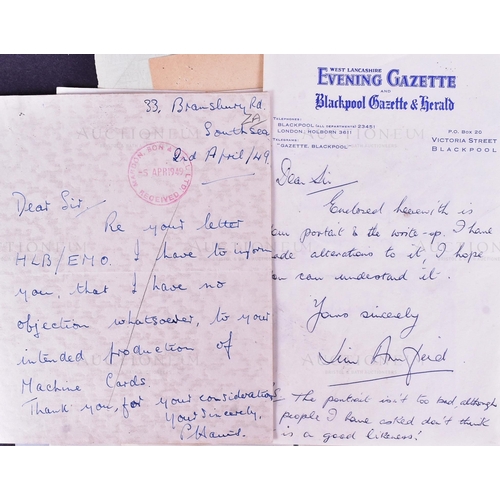 33, Bramsbury Rd.
Southsea
2nd April/49.
5 APR 1949
RECEIVED
Dear Sir,
Re your letter
HLB/EMO. I have to inform
you, that I have no
objection whatsoever, to your
intended production of
Machine Cards.
Thank you, for your consideration
Yours Sincerely,
WEST LANCASHIRE
EVENING GAZETTE
AND
Blackpool Gazette & Herald
TELEPHONES:
BLACKPOOL (ALL DEPARTMENTS) 23451
LONDON: HOLBORN 3411
TELEGRAMS:
"GAZETTE, BLACKPOOL"
P.O. BOX 20
VICTORIA STREET
BLACKPOOL
Dear Sir
Enclosed herewith is
portait & the write-up. I have
alterations to it, I hope
can understand it.
Yours sincerely
The portrait isn't too bad, although
people I have asked don't think
is a good likeness!